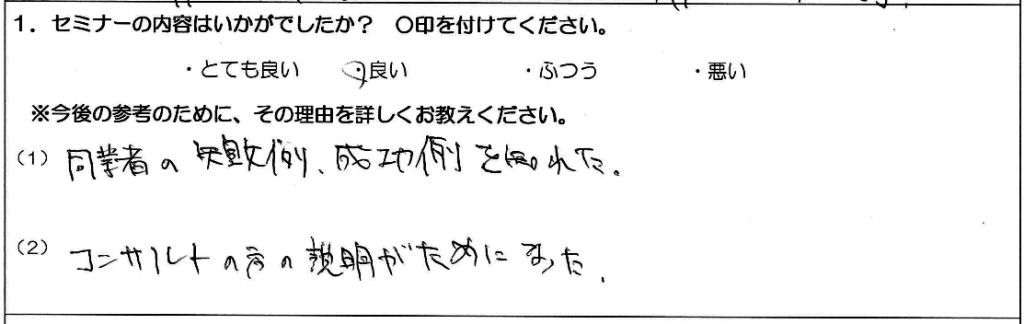 1．セミナーの内容はいかがでしたか？　○印を付けてください。
・とても良い　・良い　・ふつう　・悪い
※今後の参考のために、その理由を詳しくお教えください。
（1）同業者の失敗例、成功例を知れた。
（2）コンサルトの方の説明がためになった。